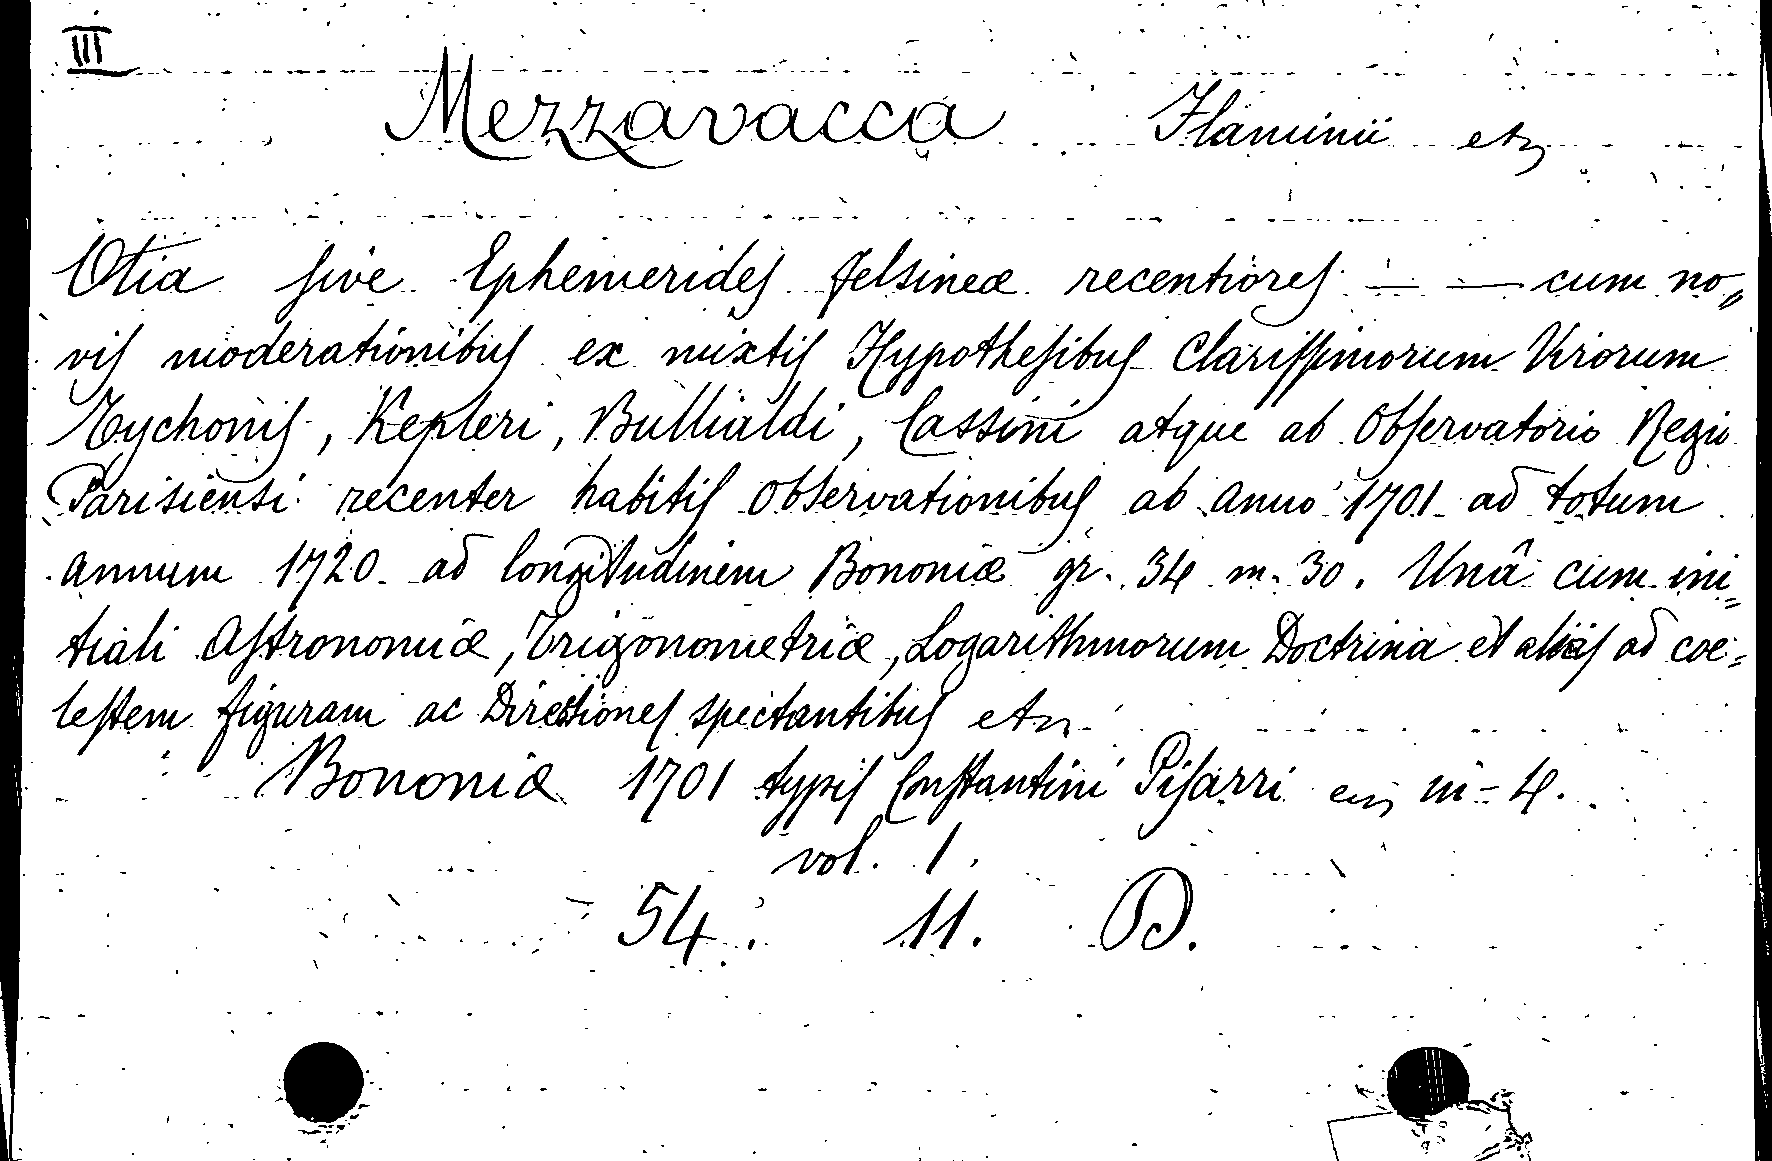 III
Mezzavacca Flaminii etz
Otia sive Ephemerides felsineæ recentiores — — cum no„
vis moderationibus ex mixtis Hypothesibus Clarissimorum Virorum
Tychonis, Kepleri, Bullialdi, Cassini atque ab Observatorio Regio
Parisiensi recenter habitis observationibus ab anno 1701 ad totum
annum 1720. ad longitudinem Bononiæ gr. 34 m. 30. Unâ cum ini„
tiali Astronomiæ, Trigonometriæ, Logarithmorum Doctrina et aliis ad coe„
lestem figuram ac Directiones spectantibus etz.
Bononiæ 1701 typis Constantini Pisarri in-4.
vol. 1.
54. 11. D.